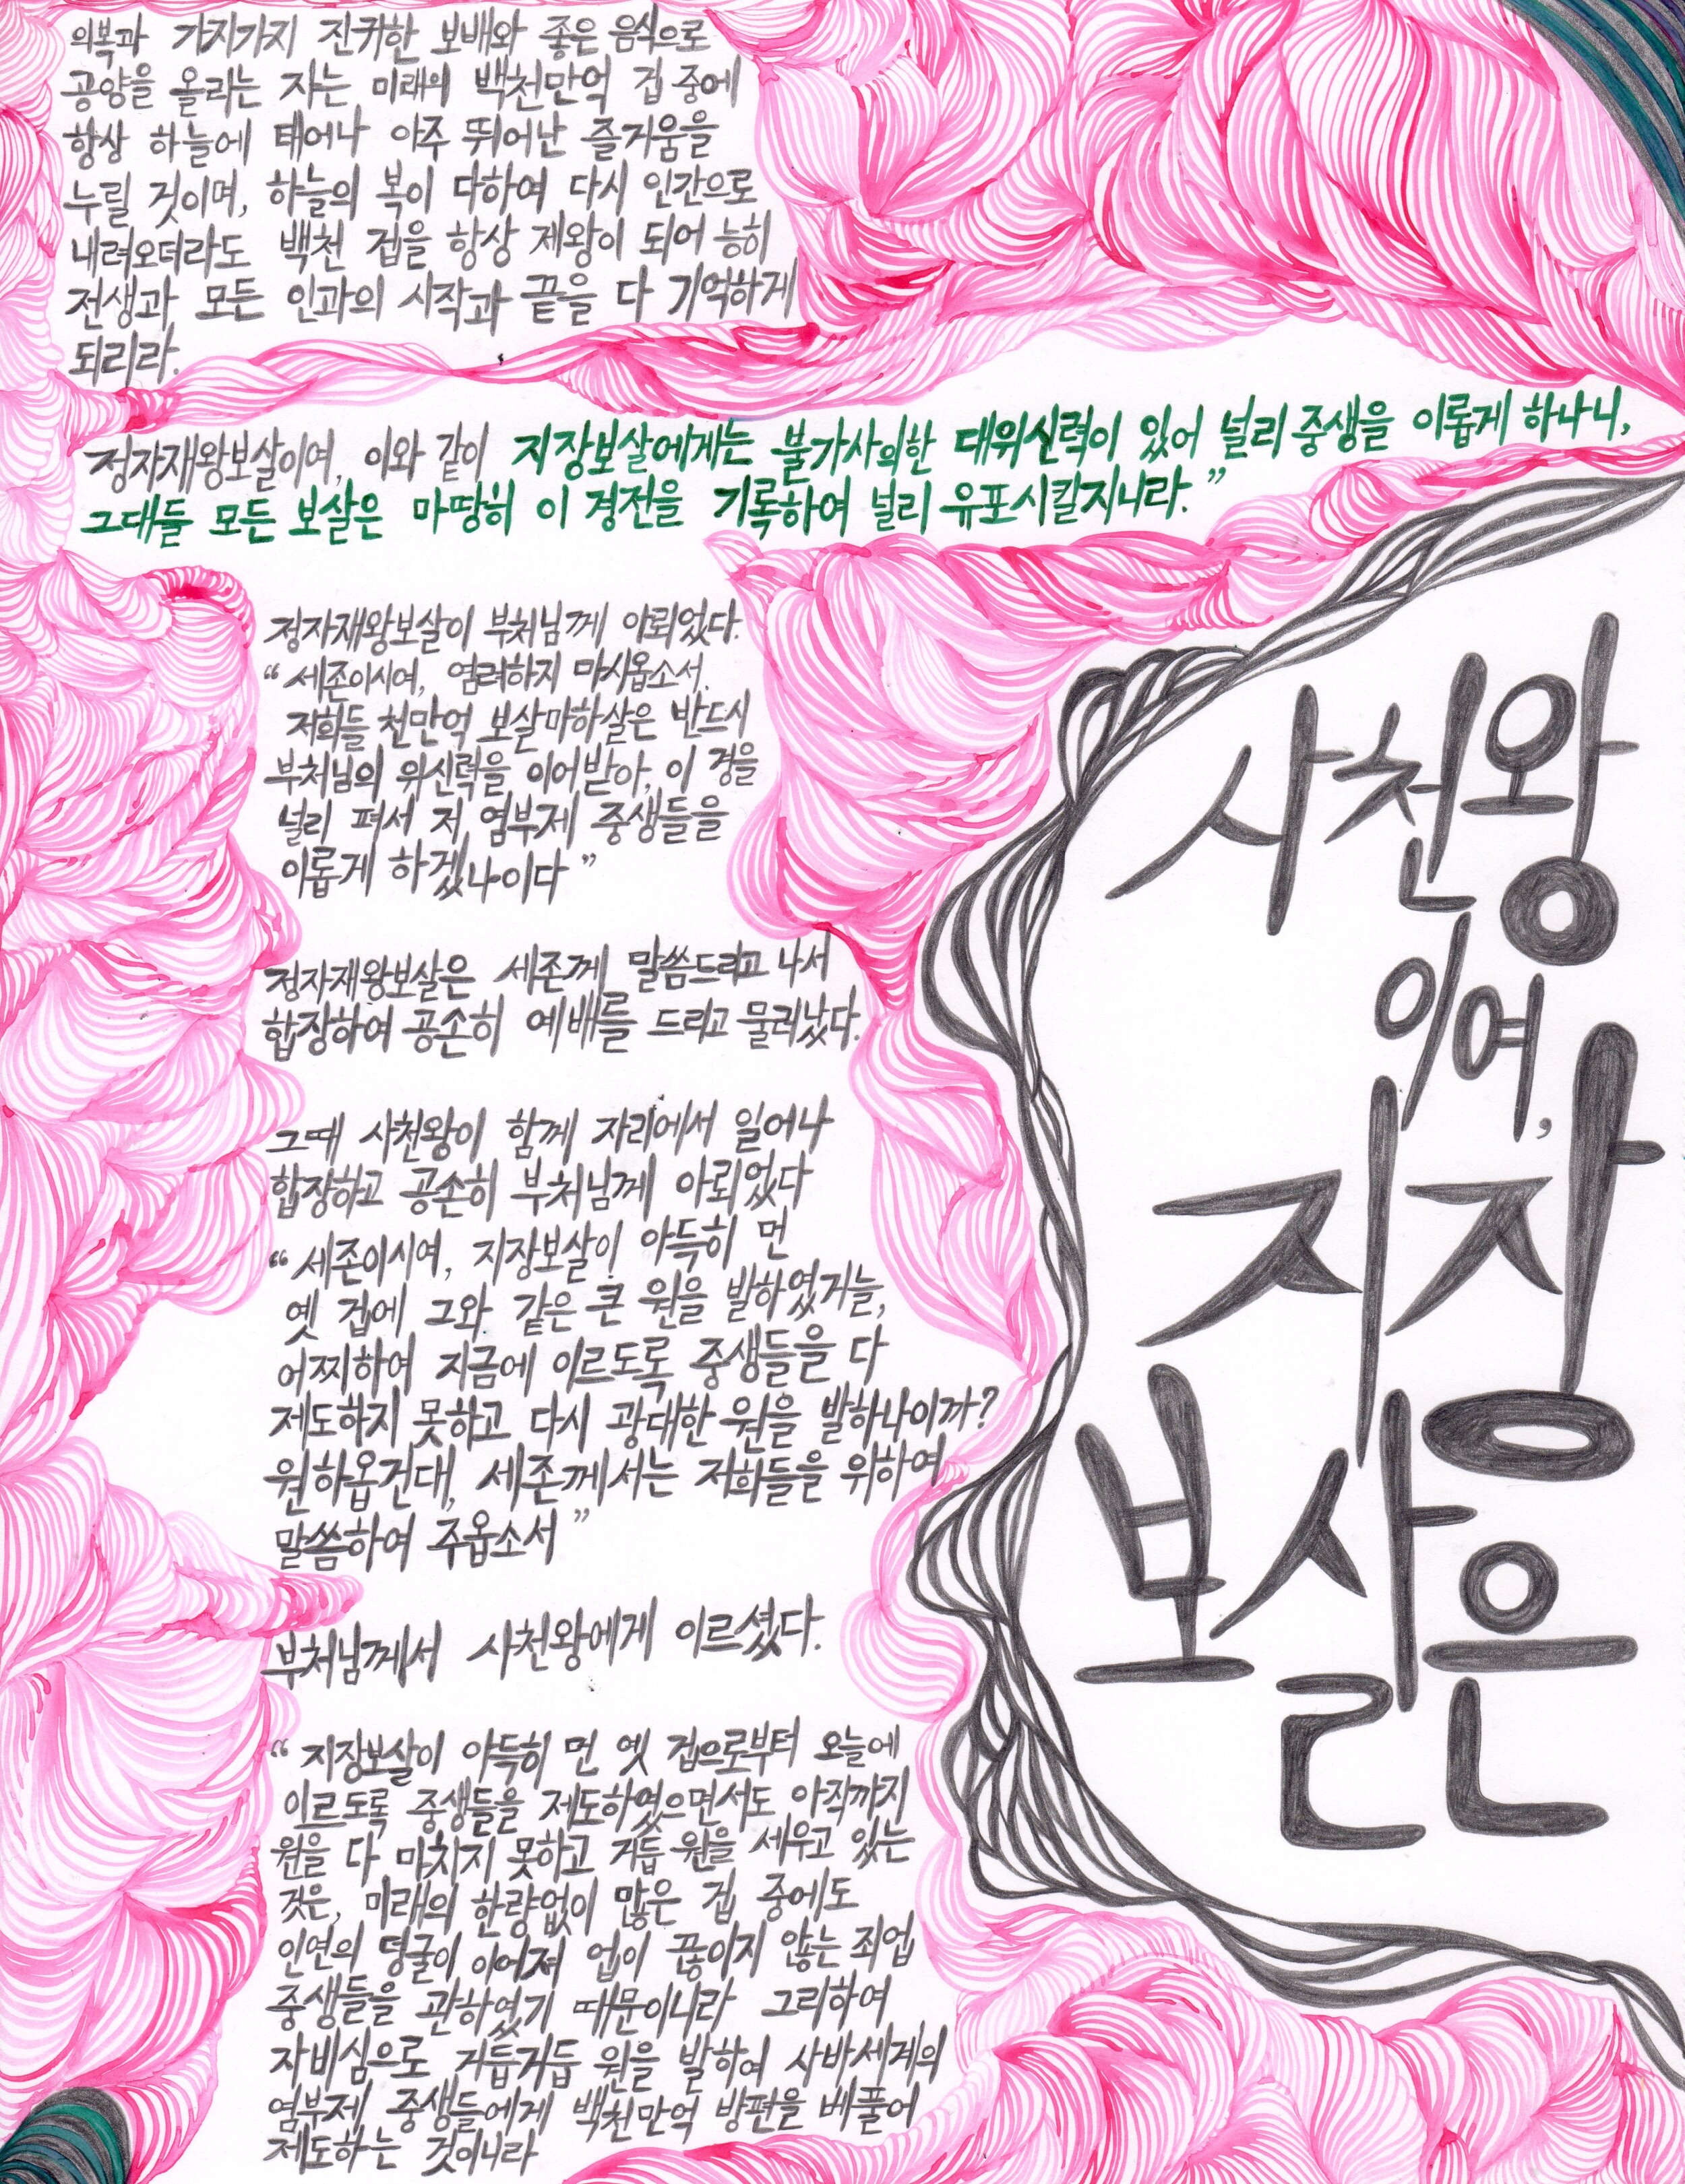 의복과 가지가지 진귀한 보배와 좋은 음식으로
공양을 올리는 자는 미래의 백천만억 겁 중에
항상 하늘에 태어나 아주 뛰어난 즐거움을
누릴 것이며, 하늘의 복이 다하여 다시 인간으로
내려오더라도 백천 겁을 항상 제왕이 되어 능히
전생과 모든 인과의 시작과 끝을 다 기억하게
되리라.
정자재왕보살이여, 이와 같이 지장보살에게는 불가사의한 대위신력이 있어 널리 중생을 이롭게 하나니,
그대들 모든 보살은 마땅히 이 경전을 기록하여 널리 유포시킬지니라.”
정자재왕보살이 부처님께 아뢰었다.
“세존이시여, 염려하지 마시옵소서.
저희들 천만억 보살마하살은 반드시
부처님의 위신력을 이어받아, 이 경을
널리 펴서 저 염부제 중생들을
이롭게 하겠나이다”
정자재왕보살은 세존께 말씀드리고 나서
합장하여 공손히 예배를 드리고 물러났다.
그때 사천왕이 함께 자리에서 일어나
합장하고 공손히 부처님께 아뢰었다
“세존이시여, 지장보살이 아득히 먼
옛 겁에 그와 같은 큰 원을 발하였거늘,
어찌하여 지금에 이르도록 중생들을 다
제도하지 못하고 다시 광대한 원을 발하나이까?
원하옵건대, 세존께서는 저희들을 위하여
말씀하여 주옵소서”
부처님께서 사천왕에게 이르셨다.
“지장보살이 아득히 먼 옛 겁으로부터 오늘에
이르도록 중생들을 제도하였으면서도 아직까지
원을 다 마치지 못하고 거듭 원을 세우고 있는
것은, 미래의 한량없이 많은 겁 중에도
인연의 덩굴이 이어져 업이 끊이지 않는 죄업
중생들을 관하였기 때문이니라 그리하여
자비심으로 거듭거듭 원을 발하여 사바세계의
염부제 중생들에게 백천만억 방편을 베풀어
제도하는 것이니라
사천왕
이여,
지장
보살은